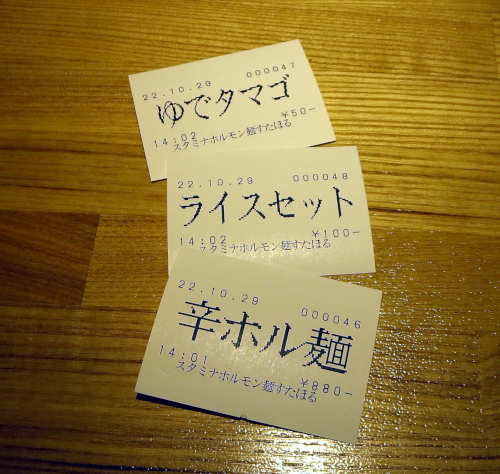 22.10.29 000047
ゆでタマゴ
¥50-
14:02
スタミナホルモン麺すたほる
22.10.29 000048
ライスセット
¥100-
14:02
スタミナホルモン麺すたほる
22.10.29 000046
辛ホル麺
14:01 ¥880-
スタミナホルモン麺すたほる